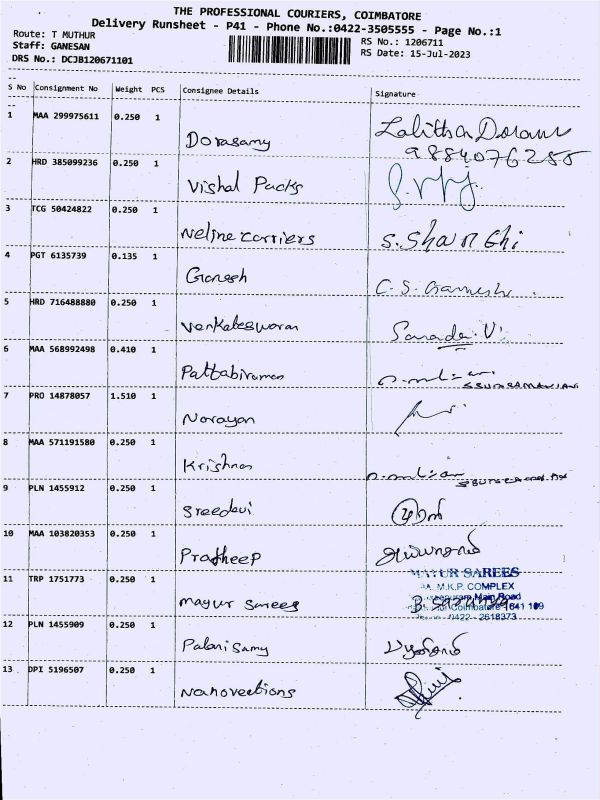 THE PROFESSIONAL COURIERS, COIMBATORE
Delivery Runsheet - P41 - Phone No.:0422-3505555 - Page No.:1
Route: T MUTHUR
Staff: GANESAN
DRS No.: DCJB120671101
RS No.: 1206711
RS Date: 15-Jul-2023
S No Consignment No Weight PCS Consignee Details Signature
1 MAA 299975611 0.250 1 Dorasamy Lalitha Doram
9884076255
2 HRD 385099236 0.250 1 Vishal Packs
3 TCG 50424822 0.250 1 Neline carriers S. Shan Ghi
4 PGT 6135739 0.135 1 Ganesh C. S. Gamesh
5 HRD 716488880 0.250 1 Venkateswaran Sarada. V
6 MAA 568992498 0.410 1 Pattabiraman
7 PRO 14878057 1.510 1 Narayan
8 MAA 571191580 0.250 1 Krishnan
9 PLN 1455912 0.250 1 Sreedevi
10 MAA 103820353 0.250 1 Pratheep
11 TRP 1751773 0.250 1 mayur sarees MAYUR SAREES
M.K.P. COMPLEX
Main Road
Coimbatore 641 109
0422 - 2618373
12 PLN 1455909 0.250 1 Palanisamy
13 DPI 5196507 0.250 1 Nanovections